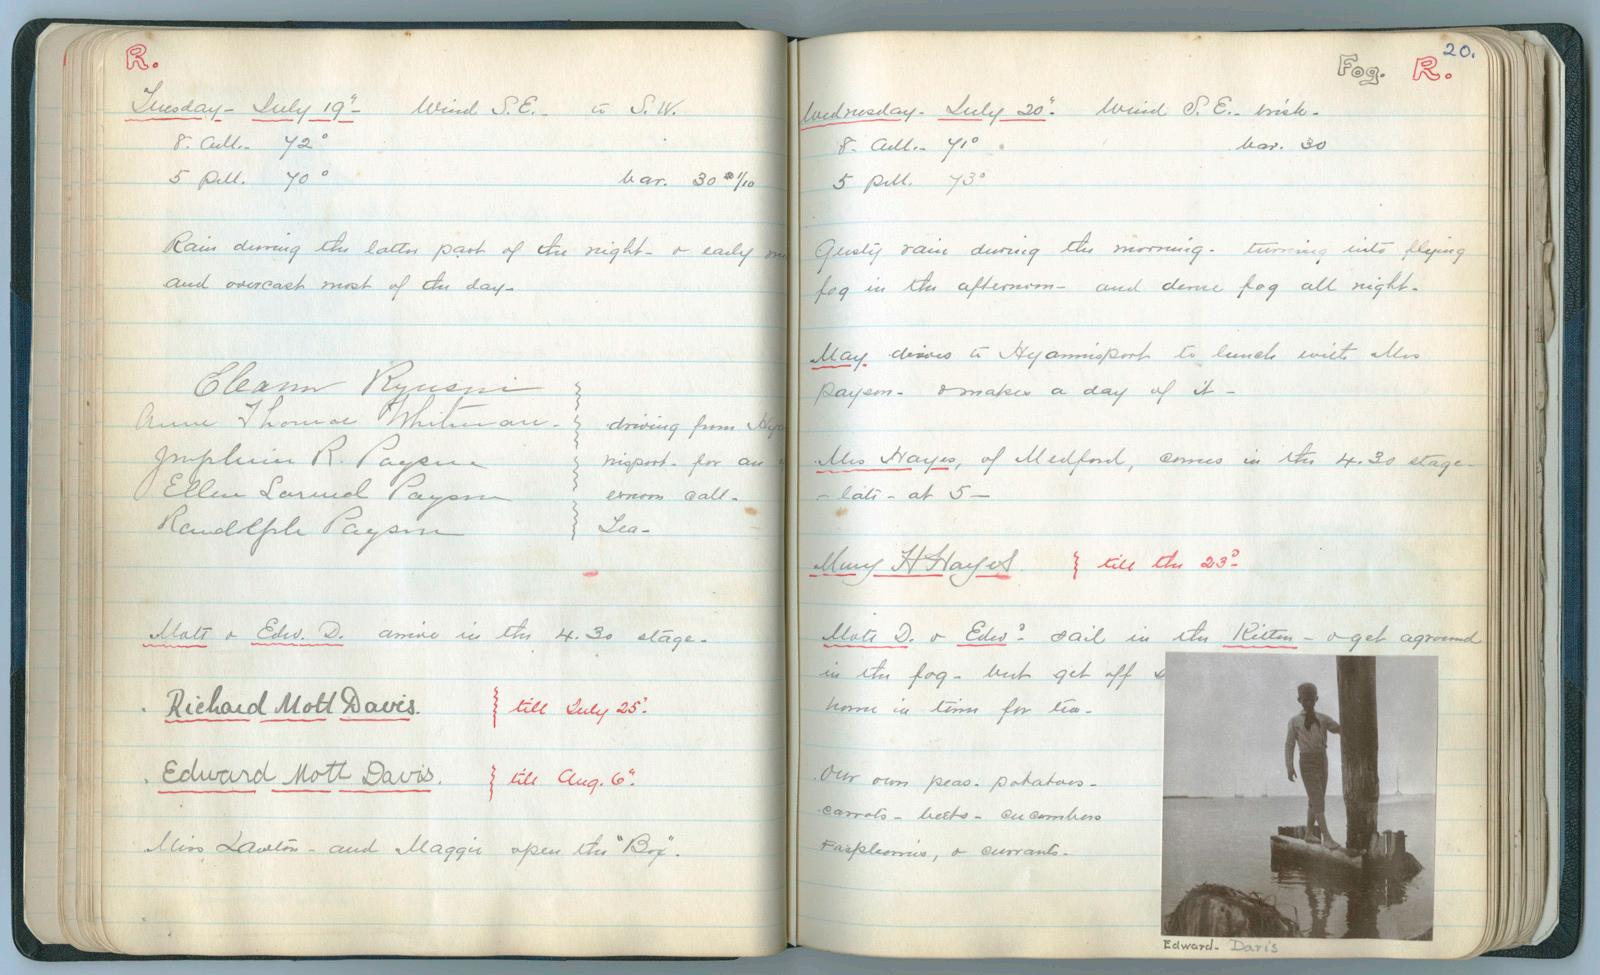 R.
Tuesday - July 19" - Wind S.E. - to S.W.
8. A.M. - 72°
5 P.M. 70° bar. 30 1/10
Rain during the latter part of the night - & early
and overcast most of the day -
Eleanor
Anne Thomae Whitman -
driving from Hya
Josephine R. Payson
nisport - for an
Ellen Larned Payson
ernoon call -
Randolph Payson
Tea -
Mott & Edw. D. arrive in the 4.30 stage -
Richard Mott Davis. till July 25".
Edward Mott Davis. till Aug. 6".
Miss Lawton - and Maggie open the "Box".
20.
Fog. R.
Wednesday - July 20". Wind S.E. - brisk -
8. A.M. - 71° bar. 30
5 P.M. 73°
Gusty rain during the morning - turning into flying
fog in the afternoon - and dense fog all night -
May drives to Hyannisport to lunch with Mrs
Payson - & makes a day of it -
Mrs Hayes, of Medford, comes in the 4.30 stage -
- late - at 5 -
Mary H Hayes till the 23d -
Mott D. & Edwd sail in the Kitten - & get aground
in the fog - but get off &
home in time for tea -
Our own peas - potatoes -
carrots - beets - cucumbers
raspberries, & currants -
Edward - Davis